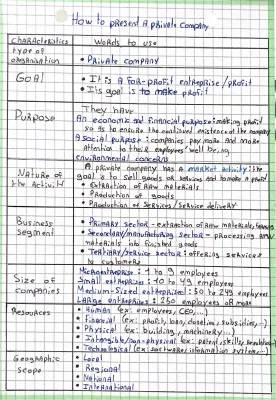 How to present a private company
characteristics
words to use
type of
organisation
• Private company
Goal
• It is a for-profit enterprise/profit
• Its goal is to make profit
Purpose
They have
An economic and financial purpose: making profit
so as to ensure the continued existence of the company
A social purpose: companies pay more and more
attention to their employees' well being
environmental concerns
Nature of
the Activity
A private company has a market activity: the
goal is to sell goods or services and to make a profit
• Extraction of raw materials
• Production of goods
• Production of services/service delivery
Business
Segment
• Primary sector - extraction of raw materials,
• Secondary/manufacturing sector - processing raw
materials into finished goods
• Tertiary/service sector: offering services
to customers
Size of
companies
Microenterprise: 1 to 9 employees
Small enterprise: 10 to 49 employees
Medium-sized enterprise: 50 to 249 employees
Large enterprises: 250 employees or more
Resources
• Human (ex: employees, CEO,...)
• Financial (ex: profit, loan, subsidies,...)
• Physical (ex: building, machinery...)
• Intangible/non-physical (ex: patent, skills,
• Technological (ex: software, information system,...
Geographic
scope
• Local
• Regional
• National
• International